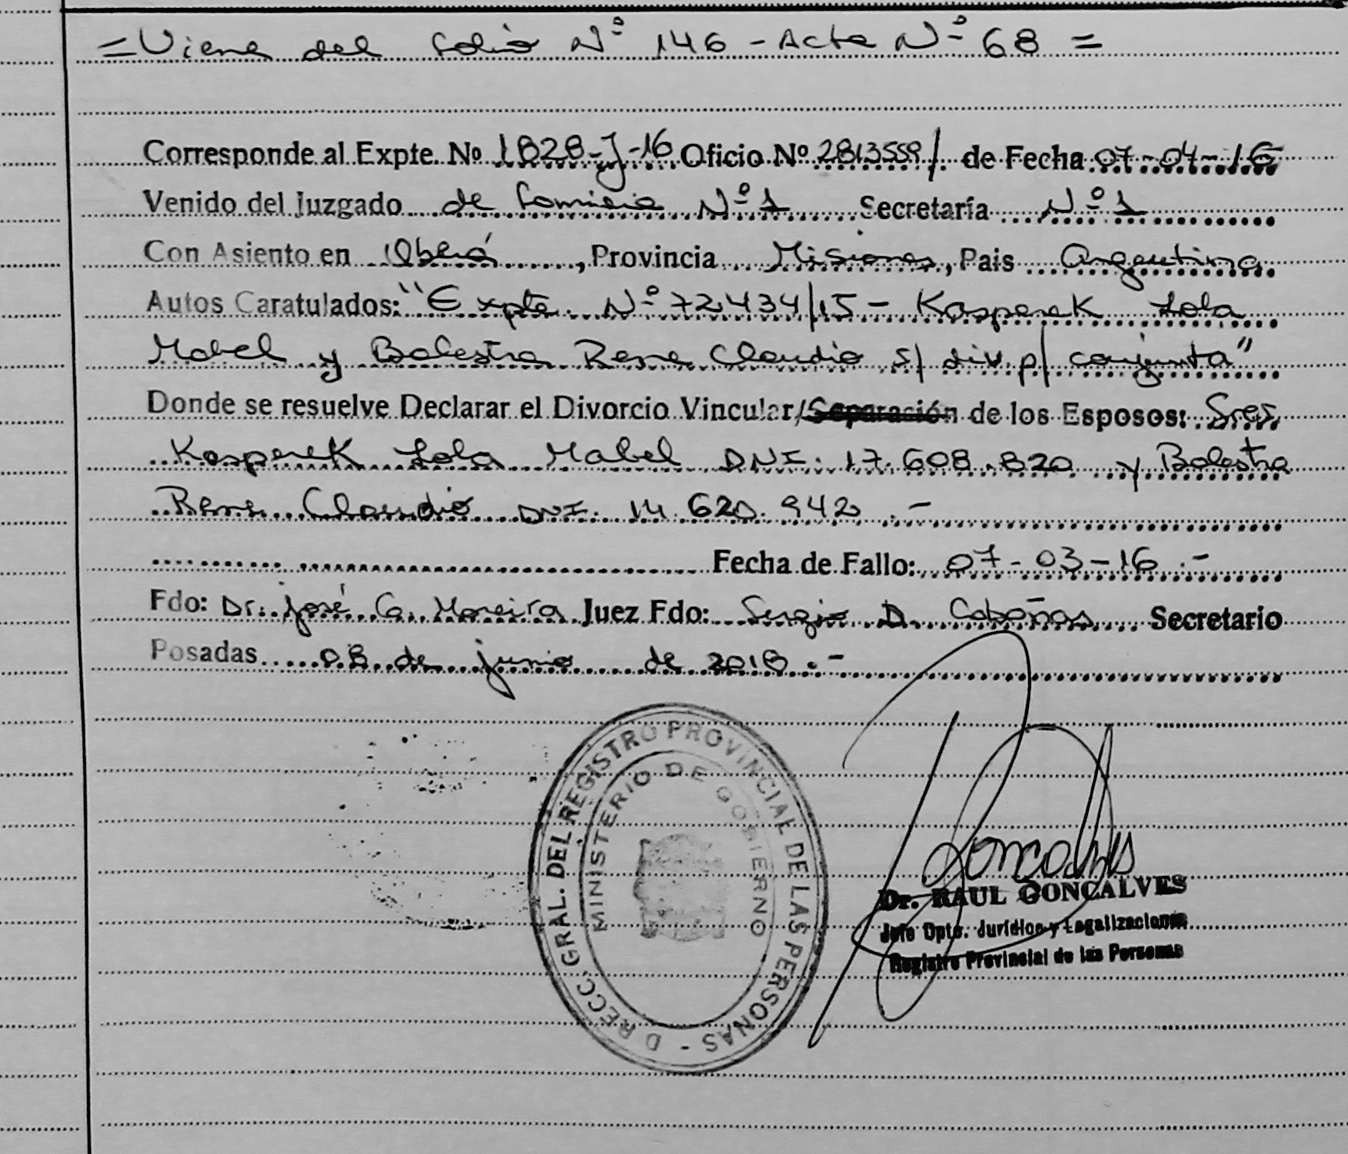 = Viene del folio Nº 146 - Acta Nº 68 =
Corresponde al Expte. Nº 1828-J-16 Oficio Nº 2813559/ de Fecha 07-04-16
Venido del Juzgado de Familia Nº 1 Secretaría Nº 1
Con Asiento en Oberá, Provincia Misiones, Pais Argentina
Autos Caratulados: "Expte. Nº 72434/15 - Kasperek Lola
Mabel y Balestra Rene Claudio s/ div. p/ conjunta"
Donde se resuelve Declarar el Divorcio Vincular/Separación de los Esposos: Sres
Kasperek Lola Mabel DNI. 17.608.820 y Balestra
Rene Claudio DNI. 14.620.942.-
Fecha de Fallo: 07-03-16.-
Fdo: Dr. José G. Moreira Juez Fdo: Sergio D. Cabañas Secretario
Posadas 08 de junio de 2018.-
DIRECC. GRAL. DEL REGISTRO PROVINCIAL DE LAS PERSONAS -
MINISTERIO DE GOBIERNO
Dr. RAUL GONCALVES
Jefe Dpto. Jurídico y Legalizaciones
Registro Provincial de las Personas